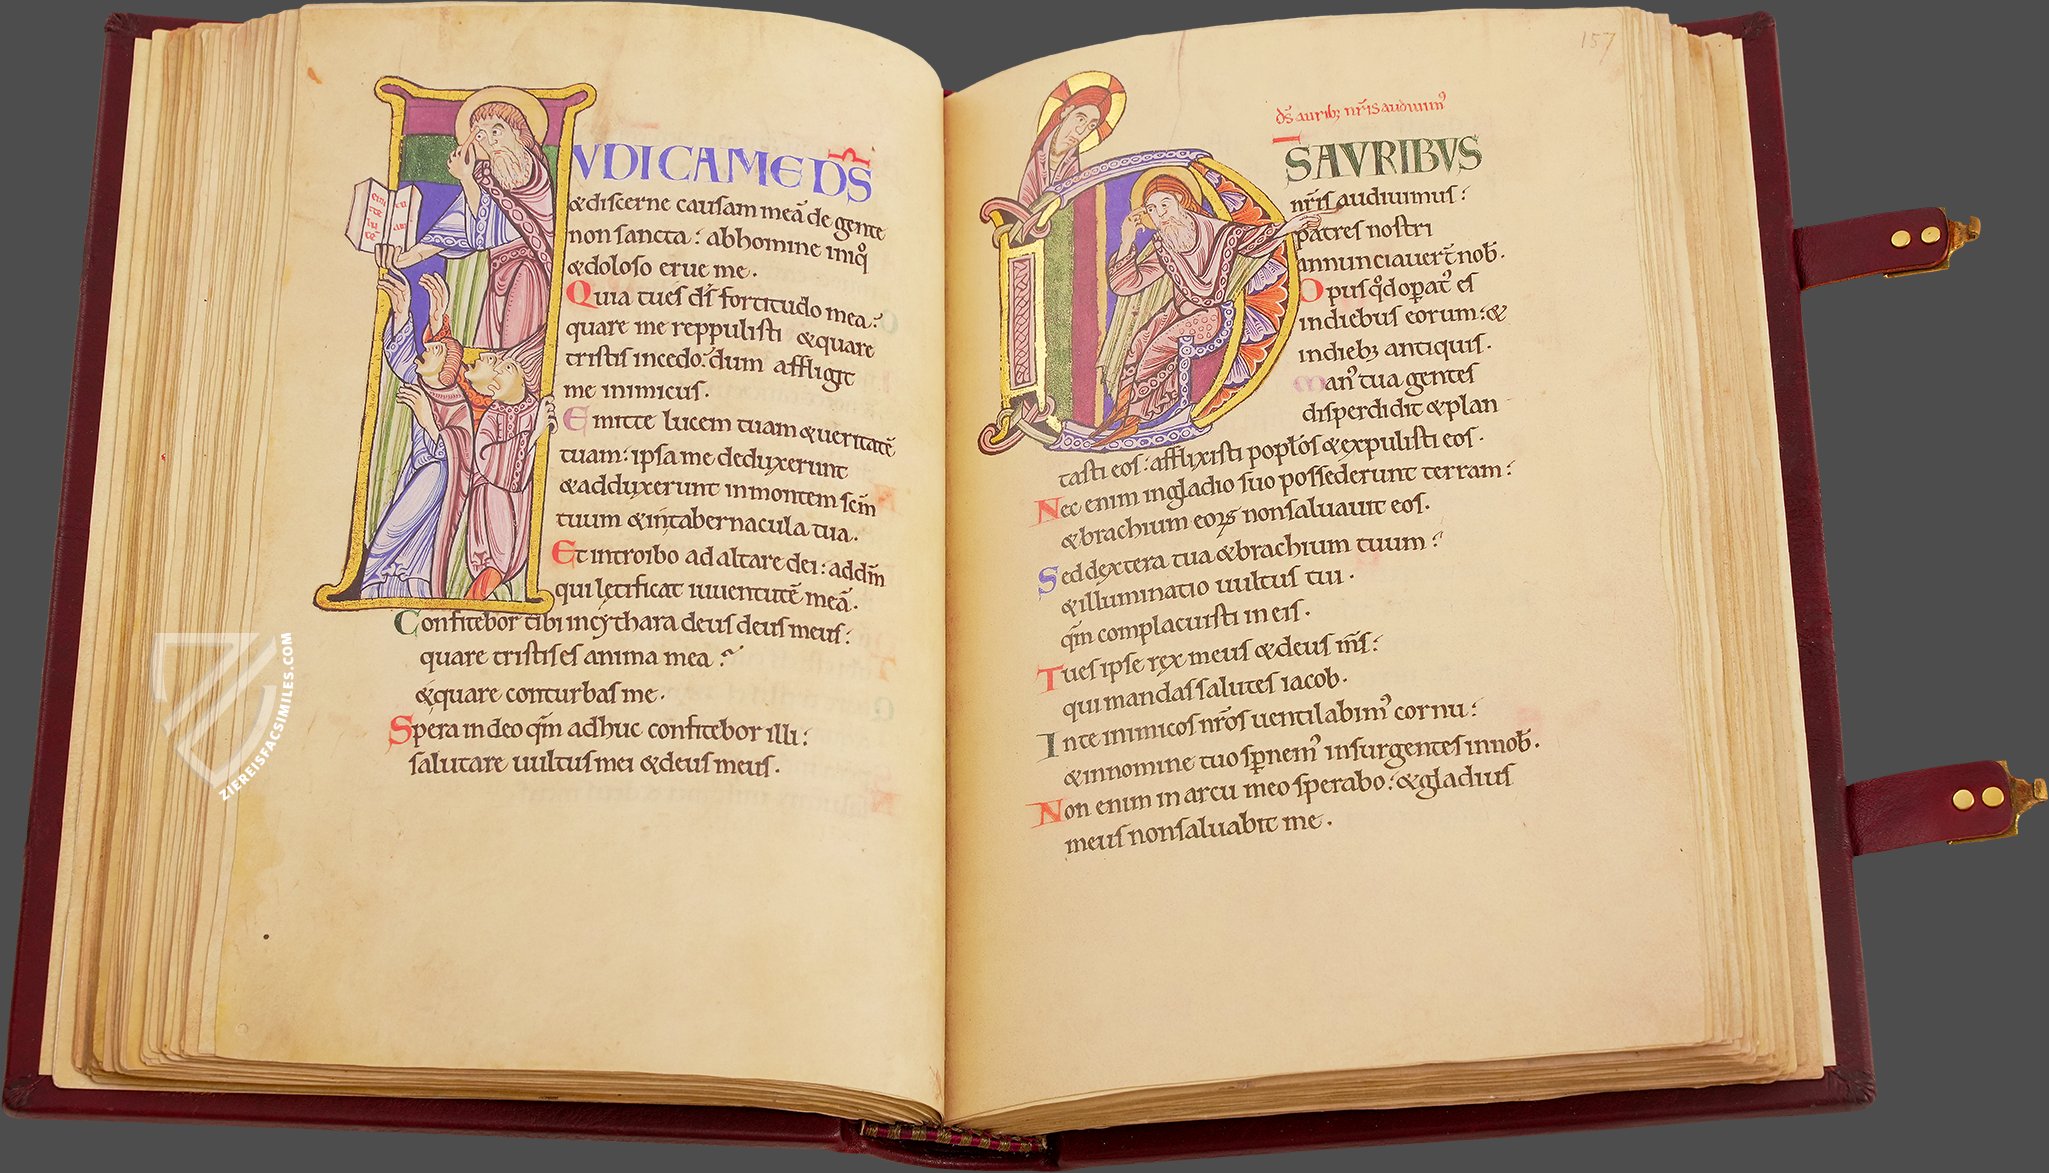 VDICA ME DS̄
&discerne causam meā de gente
non sancta: ab homine iniq̊
& doloso erue me.
Quia tu es dś fortitudo mea:
quare me reppulisti & quare
tristis incedo: dum affligit
me inimicus.
Emitte lucem tuam & ueritatē
tuam: ipsa me deduxerunt
& adduxerunt in montem scm̄
tuum & in tabernacula tua.
Et introibo ad altare dei: ad dm̄
qui letificat iuuentutē meā.
Confitebor tibi in cythara deus deus meus:
quare tristis es anima mea?
& quare conturbas me.
Spera in deo qm̄ adhuc confitebor illi:
salutare uultus mei & deus meus.
ZIEREISFACSIMILES.COM
157
dś aurib; nr̄is audiuim᾽
S AVRIBVS
nr̄is audiuimus:
patres nostri
annunciauer̄t nob̄.
Opus qd̊ opat᾽ es
in diebus eorum: &
in dieb; antiquis.
Man᾽ tua gentes
disperdidit & plan
tasti eos: afflixisti poplos & expulisti eos.
Nec enim in gladio suo possederunt terram:
& brachium eorꝝ non saluauit eos.
Sed dextera tua & brachium tuum:
& illuminatio uultus tui.
qm̄ complacuisti in eis.
Tu es ipse rex meus & deus ms̄:
qui mandas salutes iacob.
In te inimicos nr̄os uentilabim᾽ cornu:
& in nomine tuo spnem᾽ insurgentes in nob̄.
Non enim in arcu meo sperabo: & gladius
meus non saluabit me.